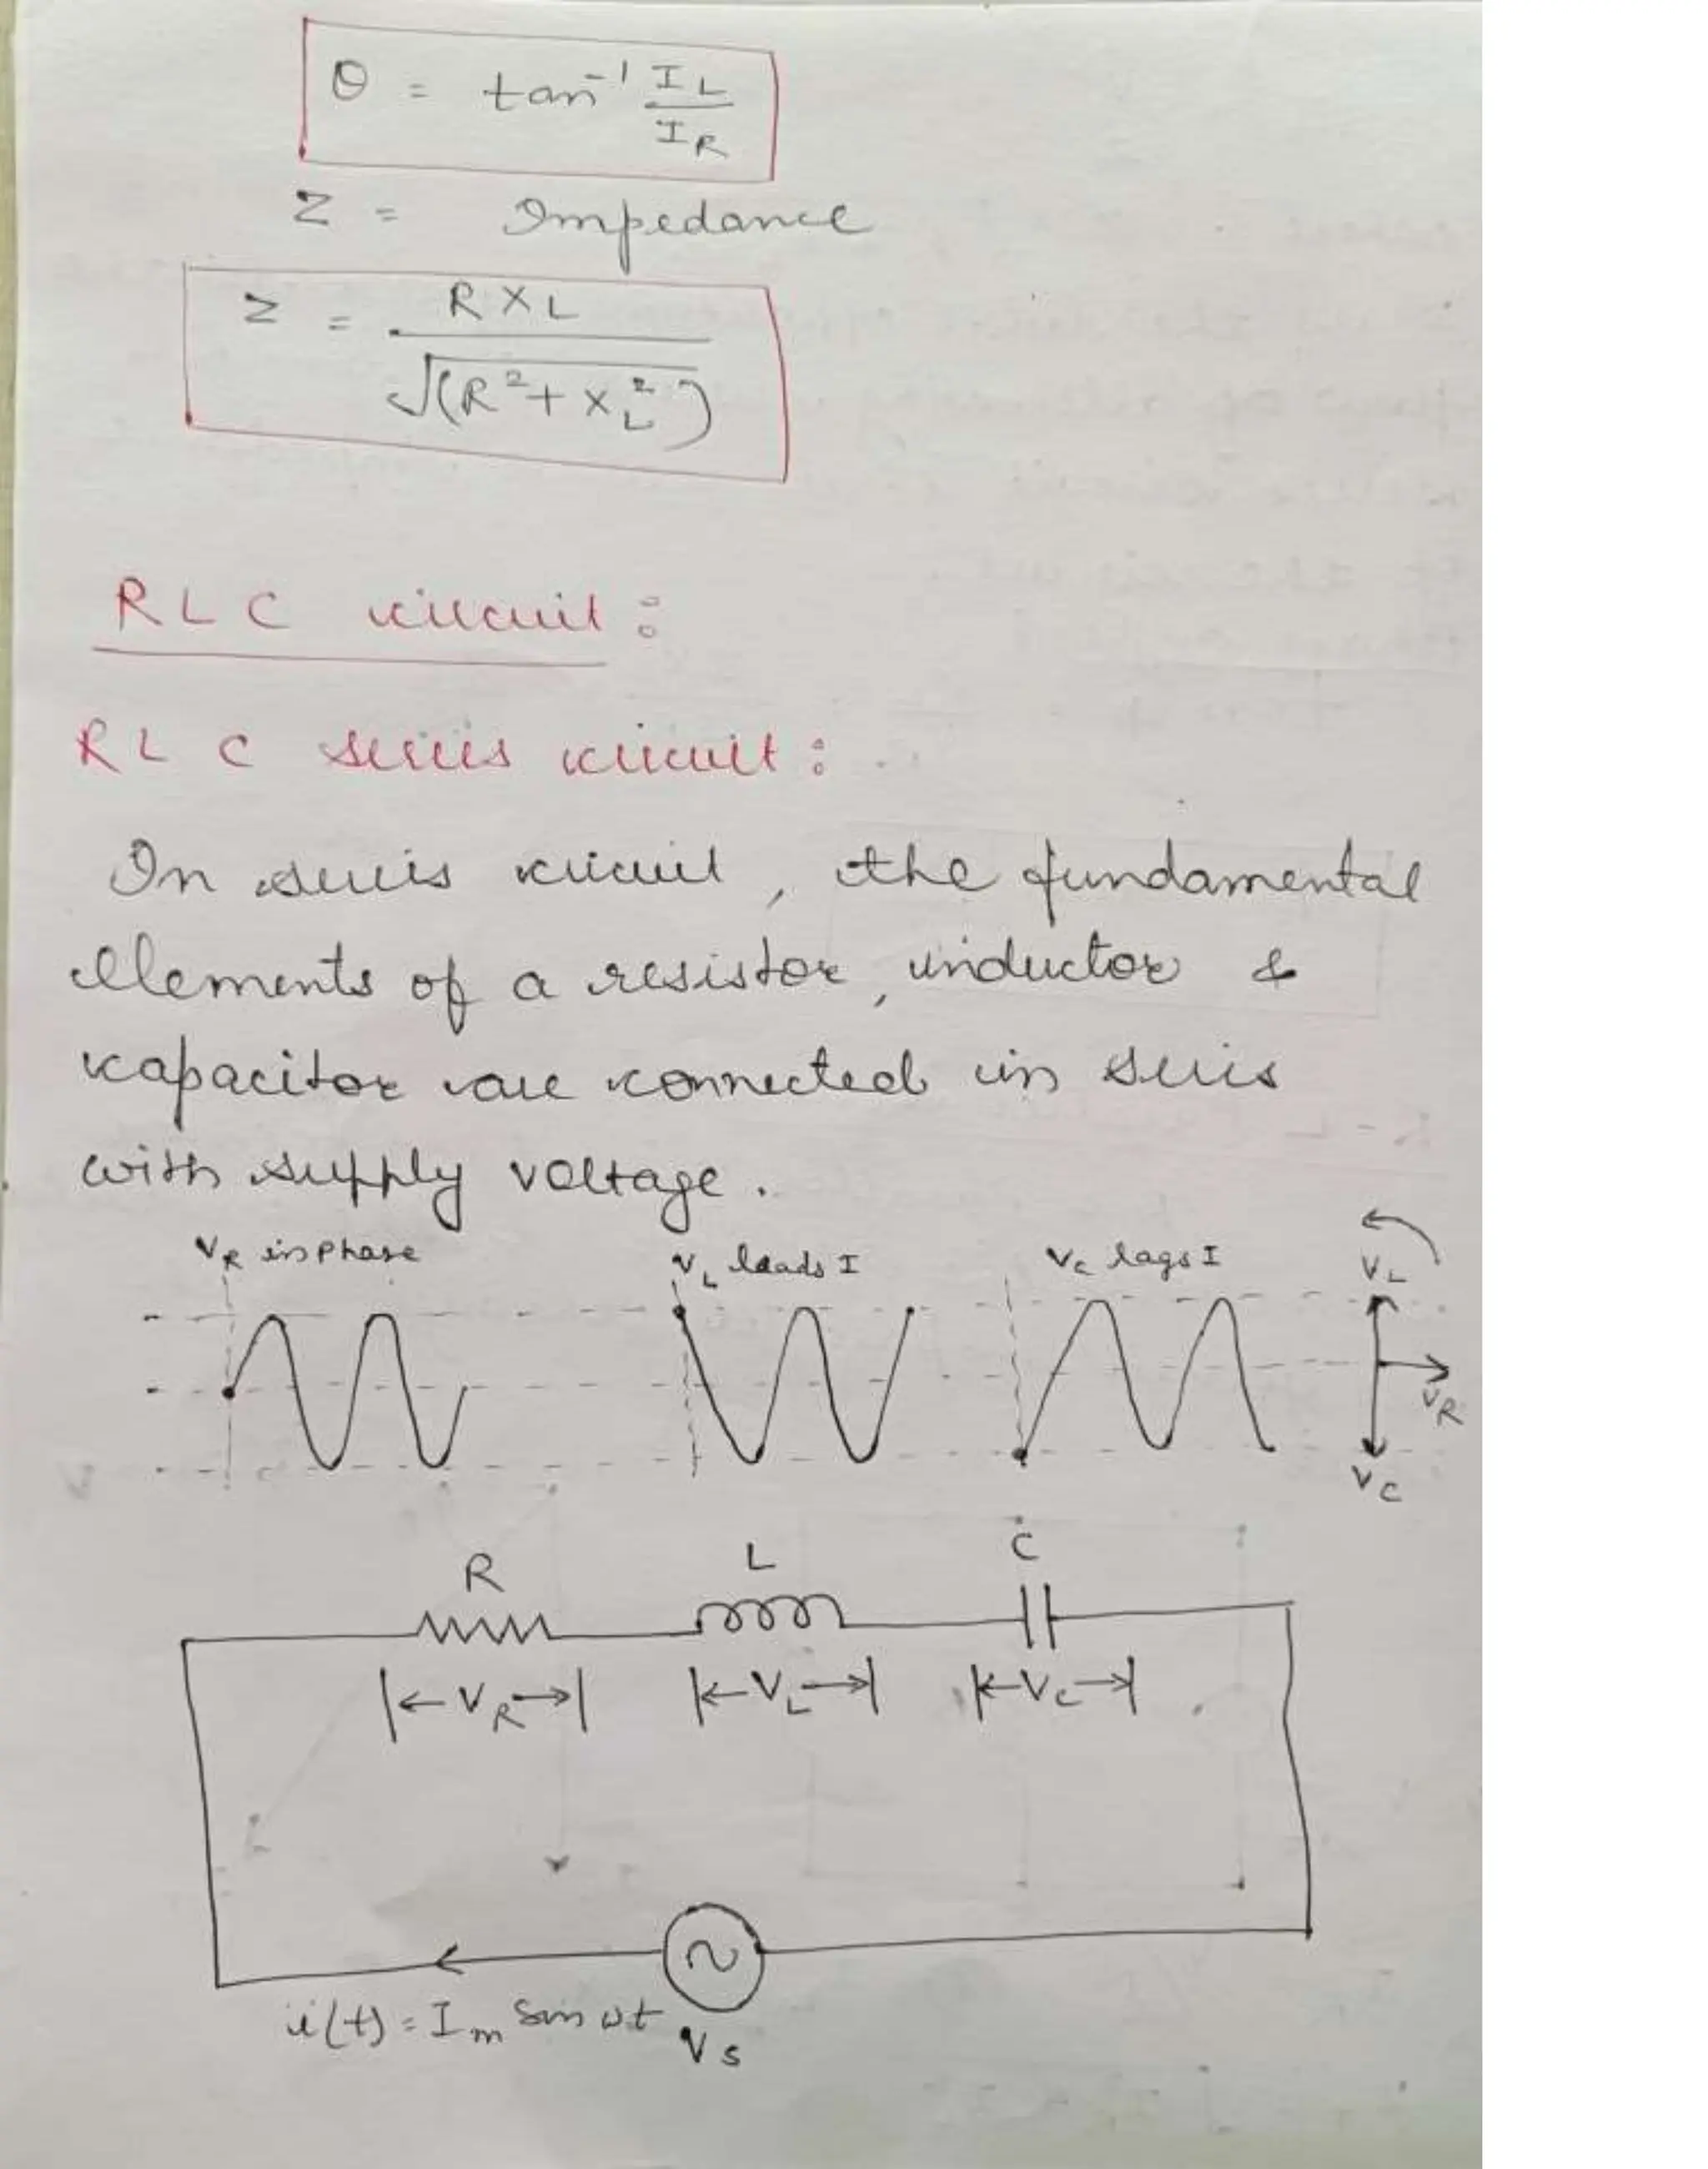 θ = tan⁻¹ I_L / I_R
Z = Impedance
Z = R X L / √(R² + X_L²)
RLC circuit :
RLC series circuit :
In series circuit, the fundamental
elements of a resistor, inductor &
capacitor are connected in series
with supply voltage.
V_R in phase V_L leads I V_C lags I
V_L
V_R
V_C
R L C
V_R V_L V_C
i(t) = I_m Sin ωt
V_S